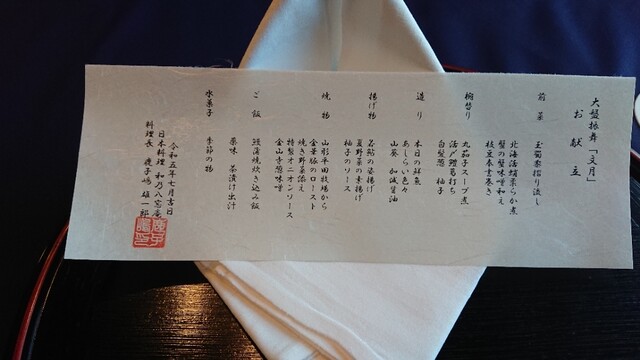 大盤振舞「文月」
お献立
前菜
玉蜀黍摺り流し
北海活蛸柔らか煮
蟹の蟹味噌和え
枝豆本書巻き
椀替り
丸茄子スープ煮
活〆鱧葛打ち
白髪葱 柚子
造り
本日の鮮魚
あしらい色々
山葵 加減醤油
揚げ物
若鮎の姿揚げ
夏野菜の素揚げ
柚子のソース
焼物
山形平田牧場から
金華豚のロースト
焼き野菜添え
特製オニオンソース
金山寺味噌
ご飯
鰻蒲焼炊き込み飯
薬味 茶漬け出汁
水菓子
季節の物
令和五年七月吉日
日本料理
料理長
雄一郎